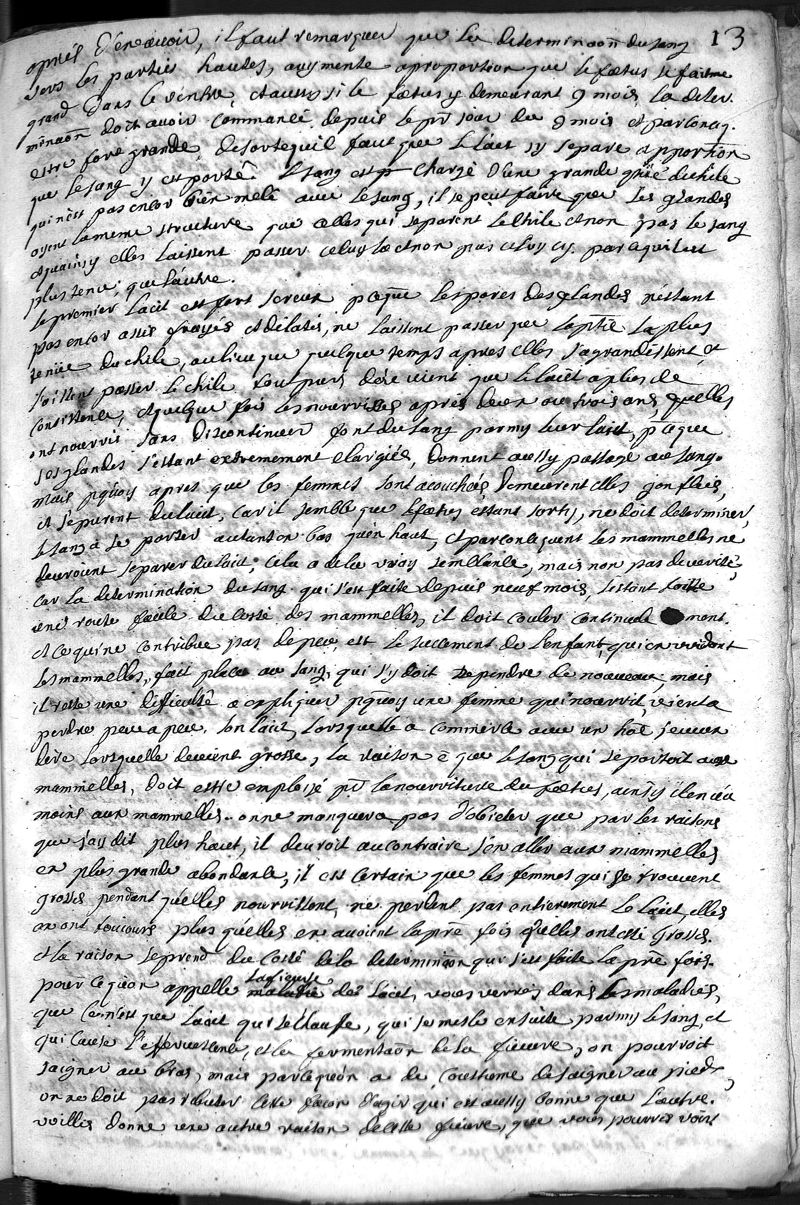 13
après d'en avoir, il faut remarquer que la determinaõn du sang
vers les parties hautes, augmente aproportion que le fœtus se faitme
grand dans le ventre, et aussy si le fœtus y demeurant 9 mois, la deter
minaõn doit avoir commancé depuis le pr̃ jour des 9 mois et par conseq.
estre fort grande, desorte qu'il faut que le laict s'y separe apportion
que le sang y est porté. le sang est chargé d'une grande q̃tité du chile
qui n'est pas encor bien melé avec le sang, il se peut faire que les glandes
ayent la meme structure que celles qui separent le chile et non pas le sang
et qu'ainsy elles laissent passer celuy la et non pas celuy cy, parce qu'il est
plus tenu, que l'autre.
le premier laict est fort sereux p̃ceque les pores des glandes n'estant
pas encor assés frayés et dilatés, ne laissent passer que la p̃tie la plus
tenüe du chile, au lieu que quelque temps apres elles s'agrandissent et
laissent passer le chile tousjours d'où vient que le laict a plus de
consistence, et quelque fois les nourrisses aprés deux ou trois ans, qu'elles
ont nourri sans discontinuer font du sang parmy leur laict, p̃ceque
les glandes s'estant extremement elargies, donnent aussy passage au sang.
mais p̃quoy apres que les femmes sont acouchées demeurent elles gonflées,
et separent du laict, car il semble que le fœtus estant sorty, ne doit determiner,
le sang a se porter autant en bas qu'en haut, et par consequent les mammelles ne
devroient separer du laict; Cela a de la vray semblance, mais non pas de verité,
car la determination du sang qui s'est faite depuis neuf mois, s'estant faitte
une route facile du costé des mammelles, il doit couler continuele ment.
et ce qui ne contribue pas de peu, est le succement de l'enfant, qui en vuidant
les mammelles, fait place au sang, qui s'y doit repandre de nouveau, mais
il reste une difficulté a expliquer p̃quoy une femme qui nourrit vient a
perdre peu a peu son laict, lorsqu'elle a commerce avec un hõe, je veux
dire lorsqu'elle devient grosse, la raison ẽ que le sang qui se portoit aux
mammelles, doit estre emploié pr̃ la nourriture du fœtus, ainsy il en va
moins aux mammelles. on ne manquera pas d'obiecter que par les raisons
que j'ay dit plus haut, il devroit au contraire s'en aller aux mammelles
en plus grande abondance, il est certain que les femmes qui se trouvent
grosses pendant qu'elles nourrissent, ne perdent pas entierement le laict, elles
en ont toujours plus qu'elles en avoient la pre fois qu'elles ont esté grosses.
et la raison se prend du costé de la determinaõn qui s'est faite la pre fois.
pour ce qu'on appelle la fievre de laict, vous verrés dans les maladies,
que ce n'est que laict qui s'echauffe, qui se mesle ensuite parmy le sang, et
qui cause l'effervescence, et la fermentaõn de la fievre, on pourroit
saigner au bras, mais parce qu'on a de coustume de saigner au pied,
on ne doit pas rebuter cette facon d'agir qui est aussy bonne que l'autre.
willis donne une autre raison de cette fievre, que vous pourrés voir